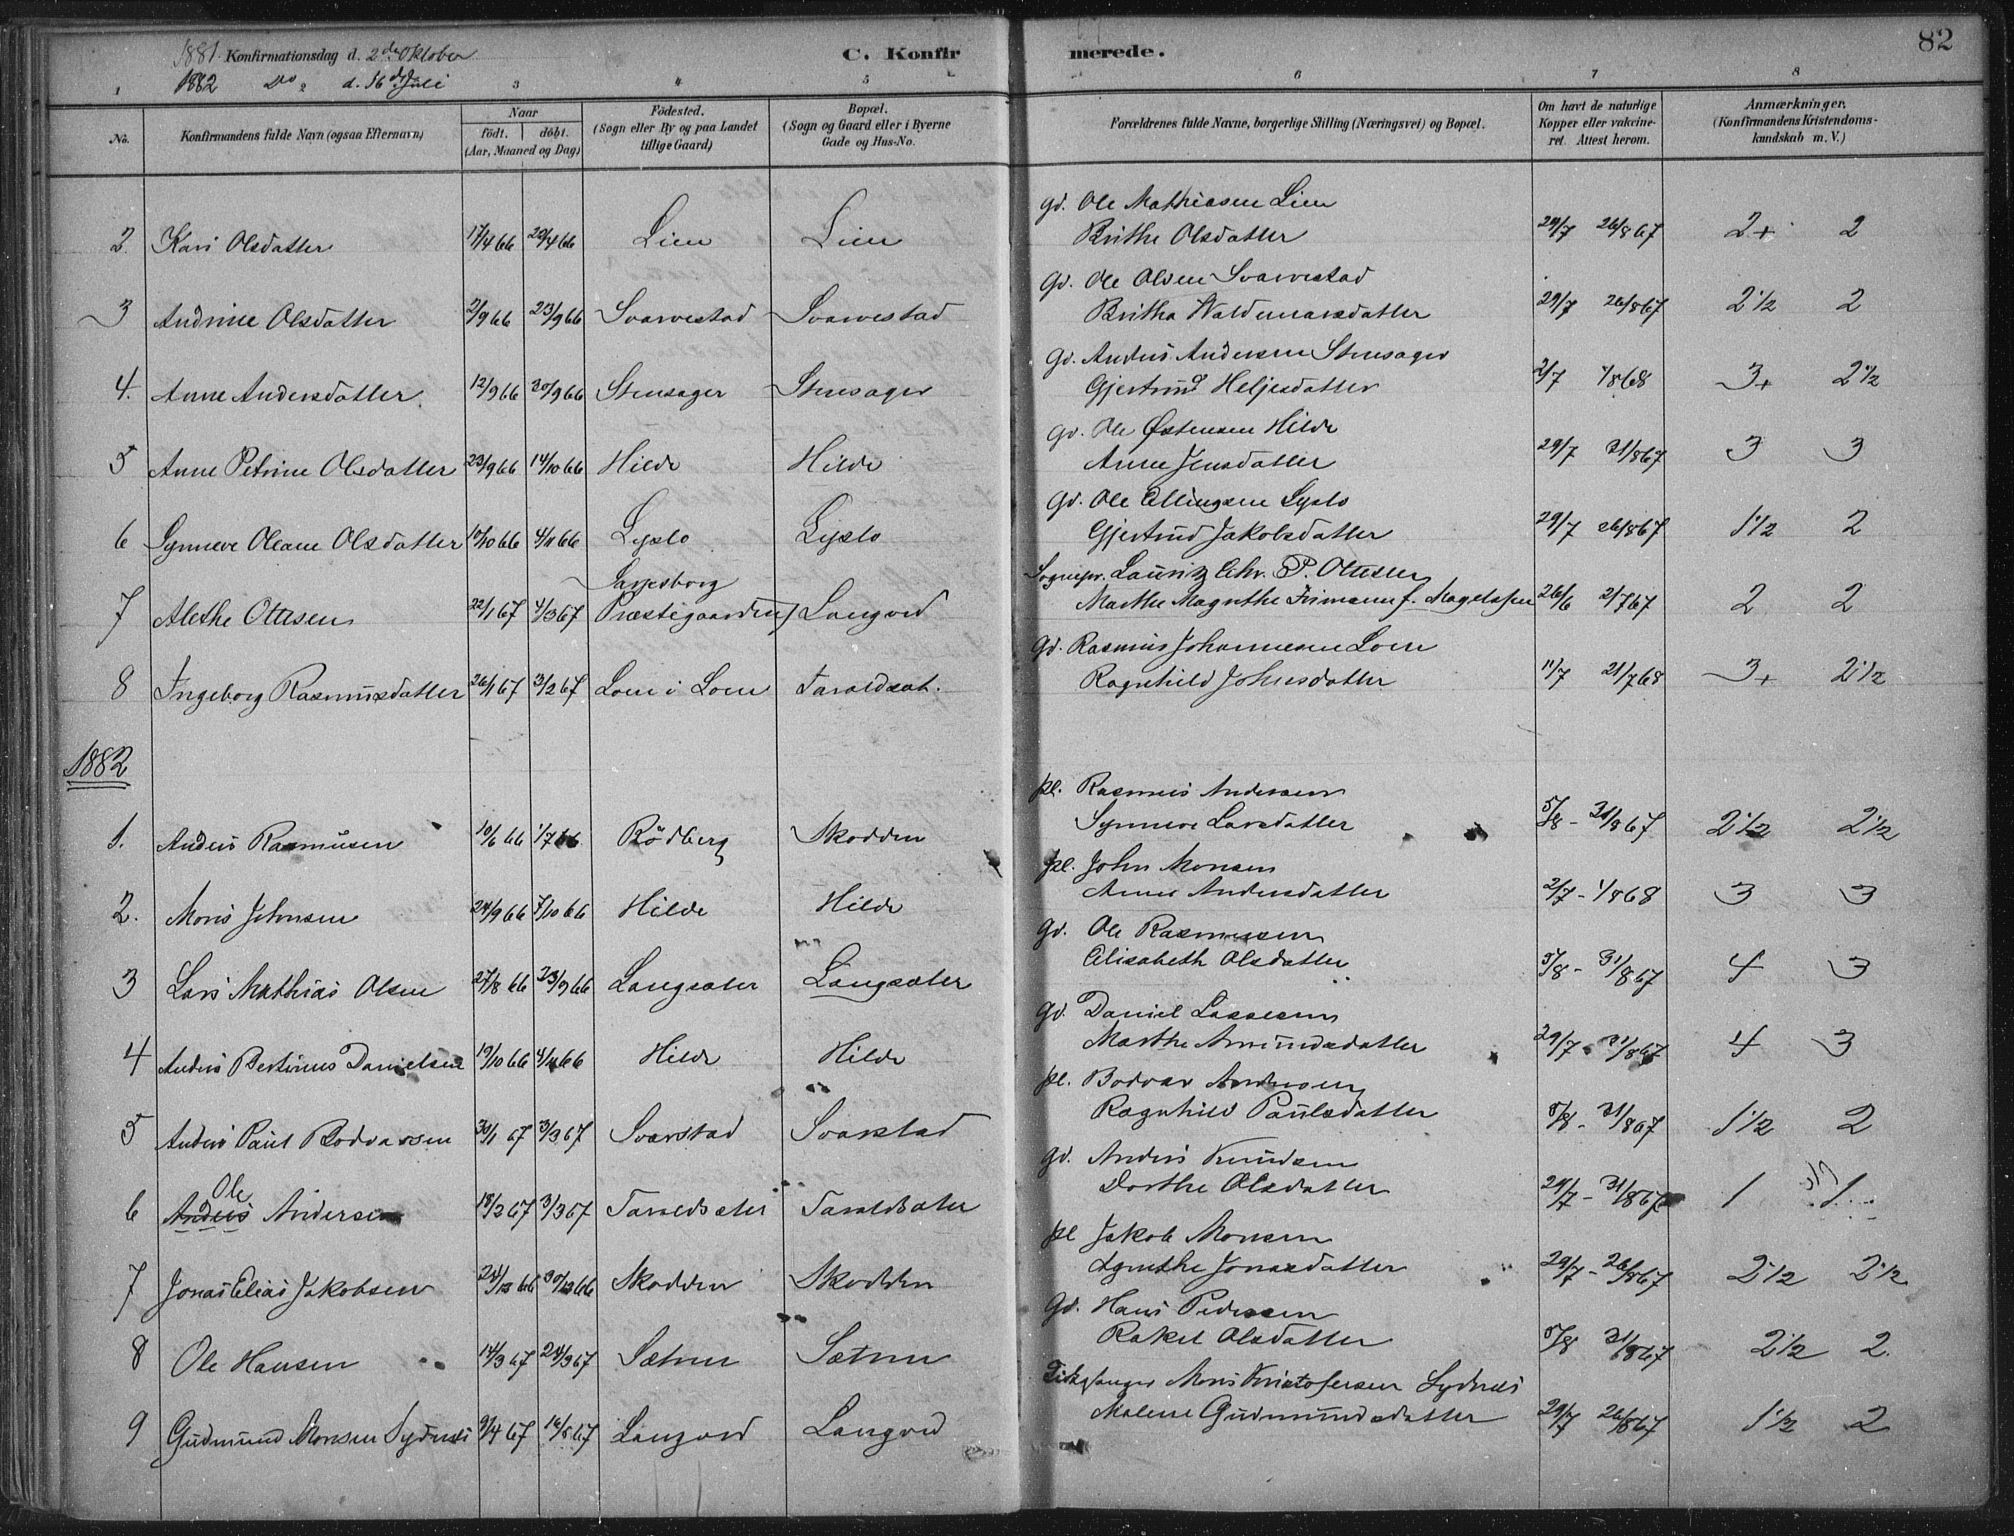 1881. Konfirmationsdag d. 2de Oktober
1882 Do d. 16de Juli
C. Konfirmerede.
82
1 3 4 5 6 7 8
No.
Konfirmandens fulde Navn (ogsaa Efternavn)
Naar
födt. döbt.
(Aar, Maaned og Dag)
Födested.
(Sogn eller By og paa Landet
tillige Gaard)
Bopæl.
(Sogn og Gaard eller i Byerne
Gade og Hus-No.
Forældrenes fulde Navne, borgerlige Stilling (Næringsvei) og Bopæl.
Om havt de naturlige
Kopper eller vakcine-
ret. Attest herom.
Anmærkninger.
(Konfirmandens Kristendoms-
kundskab m. V.)
gd. Ole Mathiasen Lien
2. Kari Olsdatter 17/4 66 29/4 66 Lien Lien Brithe Olsdatter 29/7 26/8 67 2+ 2
gd. Ole Olsen Svarvestad
3 Andrine Olsdatter 2/9 66 23/9 66 Svarvestad Svarvestad Britha Waldemarsdatter 29/7 26/8 67 2 1/2 2
gd. Anders Andersen Stensager
4. Anne Andersdatter 12/9 66 30/9 66 Stensager Stensager Gjertrud Heljesdatter 2/7 1/8 68 3+ 2 1/2
gd. Ole Østensen Hilde
5 Anne Petrine Olsdatter 23/9 66 14/10 66 Hilde Hilde Anne Jensdatter 29/7 31/8 67 3 3
gd. Ole Ellingsen Lyslo
6 Synneve Oleane Olsdatter 10/10 66 4/11 66 Lyslo Lyslo Gjertrud Jakobsdatter 29/7 26/8 67 1 1/2 2
Sognepr. Lauritz Chr. P. Ottesen
7 Alethe Ottesen 22/1 67 4/3 67 Sarpsborg Præstegaarden Langvd Marthe Magrethe Frimann f. Magelssen 26/6 2/7 67 2 2
gd. Rasmus Johannesen Loen
8 Ingeborg Rasmusdatter 26/1 67 3/2 67 Loen i Loen Taraldsæt. Ragnhild Johnsdatter 11/7 21/7 68 3+ 2 1/2
1882
pl. Rasmus Andersen
1. Anders Rasmusen 10/6 66 1/7 66 Rödberg Skodden Synneve Larsdatter 5/8 - 31/8 67 2 1/2 2 1/2
pl. John Monsen
2. Mons Johnsen 24/9 66 7/10 66 Hilde Hilde Anne Andersdatter 2/7 - 1/8 68 3 3
gd. Ole Rasmusen
3 Lars Mathias Olsen 27/8 66 23/9 66 Langsæter Langsæter Elisabeth Olsdatter 5/8 - 31/8 67 4 3
gd. Daniel Lassesen
4 Anders Bertinus Danielsen 19/10 66 4/11 66 Hilde Hilde Marthe Amundsdatter 29/7 - 31/8 67 4 3
pl. Bodvar Andersen
5 Anders Paul Bodvarsen 30/1 67 3/3 67 Svarstad Svarstad Ragnhild Paulsdatter 5/8 - 31/8 67 1 1/2 2
gd. Anders Knudsen
6 Anders Ole Andersen 18/2 67 3/3 67 Taraldsæter Taraldsæter Dorthe Olsdatter 29/7 - 31/8 67 1 1
pl Jakob Monsen
7 Jonas Elias Jakobsen 24/12 66 30/12 66 Skodden Skodden Agnethe Jonasdatter 29/7 - 26/8 67 2 1/2 2 1/2
gd. Hans Pedersen
8 Ole Hansen 14/3 67 24/3 67 Sætren Sætren Rakel Olsdatter 5/8 31/8 67 2 1/2 2.
Kirkesanger Mons Kristofersen Sydnes
9 Gudmund Monsen Sydnes 9/4 67 16/5 67 Langvd Langvd Malene Gudmundsdatter 29/7 26/8 67 1 1/2 2